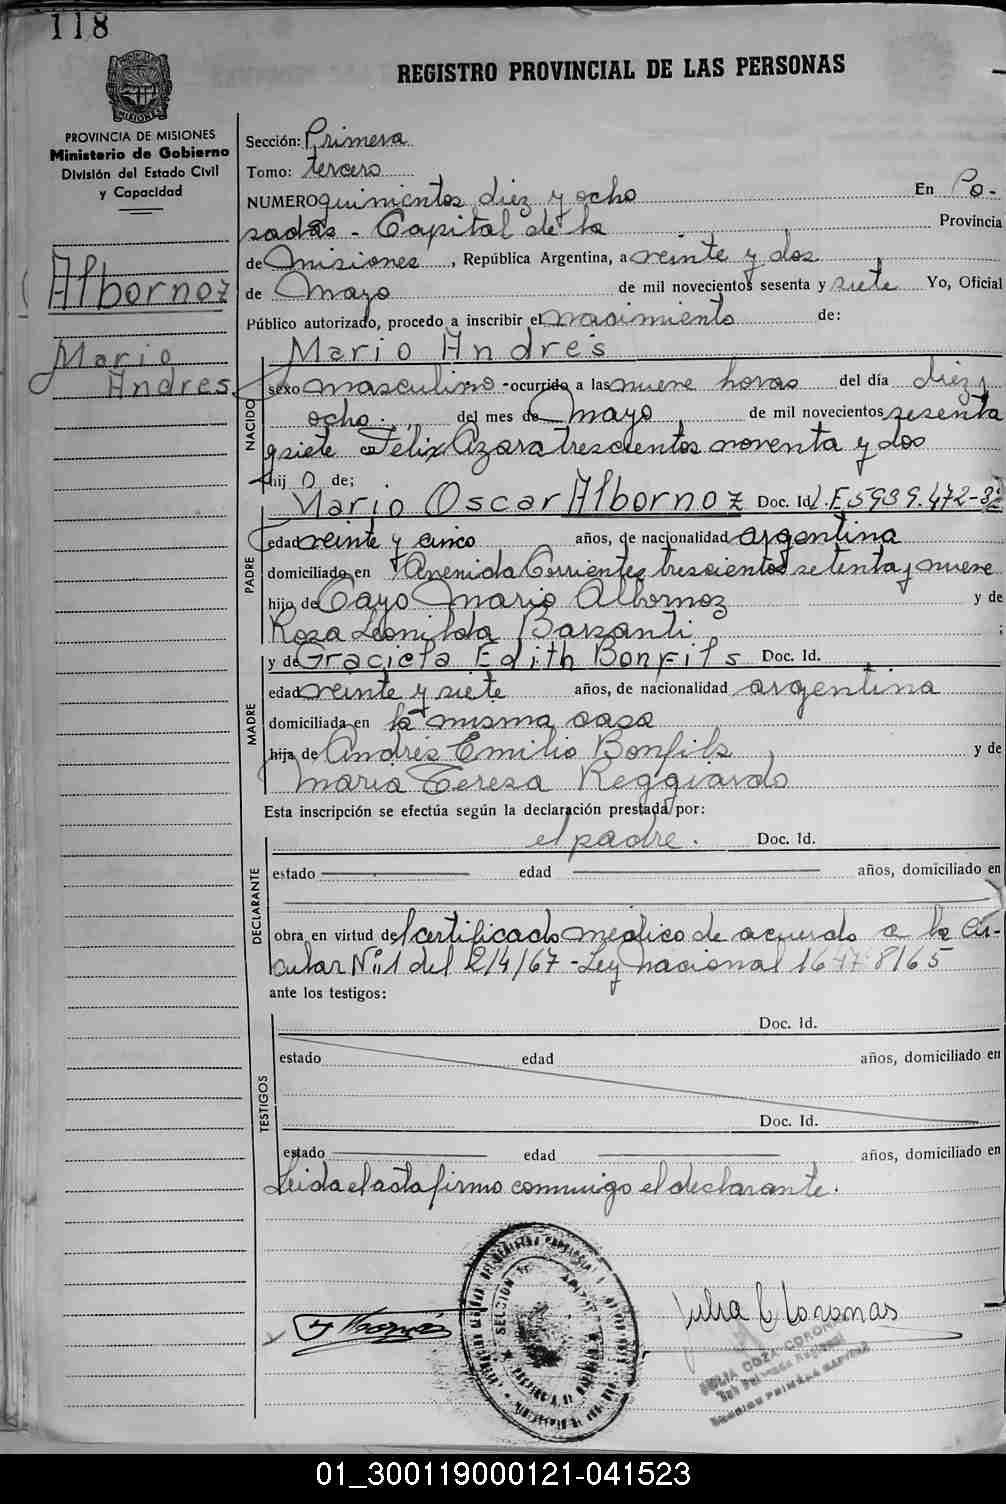 118
REGISTRO PROVINCIAL DE LAS PERSONAS
PROVINCIA DE MISIONES
Ministerio de Gobierno
División del Estado Civil
y Capacidad
Albornoz
Mario
Andres
Sección: Primera
Tomo: tercero
NUMERO quinientos diez y ocho En Po-
sadas - Capital de la Provincia
de Misiones, República Argentina, a veinte y dos
de Mayo de mil novecientos sesenta y siete Yo, Oficial
Público autorizado, procedo a inscribir el nacimiento de:
Mario Andres
NACIDO
sexo masculino - ocurrido a las nueve horas del día diez y
ocho del mes de Mayo de mil novecientos sesenta
y siete Felix Azara trescientos noventa y dos
hij o de;
Mario Oscar Albornoz Doc. Id. L.E 5939.472-
PADRE
edad veinte y cinco años, de nacionalidad argentina
domiciliado en Avenida Corrientes trescientos setenta y nueve
hijo de Cayo Mario Albornoz y de
Rosa Leonilda Barzanti ;
y de Graciela Edith Bonfils Doc. Id.
MADRE
edad veinte y siete años, de nacionalidad argentina
domiciliada en la misma casa
hija de Andrés Emilio Bonfils y de
Maria Teresa Reggiardo
Esta inscripción se efectúa según la declaración prestada por:
el padre. Doc. Id.
DECLARANTE
estado edad años, domiciliado en
obra en virtud del certificado médico de acuerdo a la Cir-
cular Nº 1 del 2/4/67 - Ley nacional 16478/65
ante los testigos:
Doc. Id.
TESTIGOS
estado edad años, domiciliado en
Doc. Id.
estado edad años, domiciliado en
Leida el acta firmo conmigo el declarante.
01_300119000121-041523